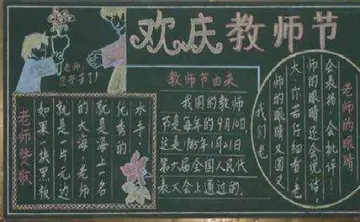 欢庆教师节
老师
您辛苦了！
教师节由来
我国的教师
节是每年的9月10日
这是1985年1月21日
第六届全国人民代
表大会上通过的.
老师赞歌
如果说黑板
就是一片无边
的大海，老师
就是海上一名
优秀的
水手
老师的眼睛
会表扬，会批评，
师的眼睛还会说话
大，你若仔细看老
师的眼睛又圆又
我们老